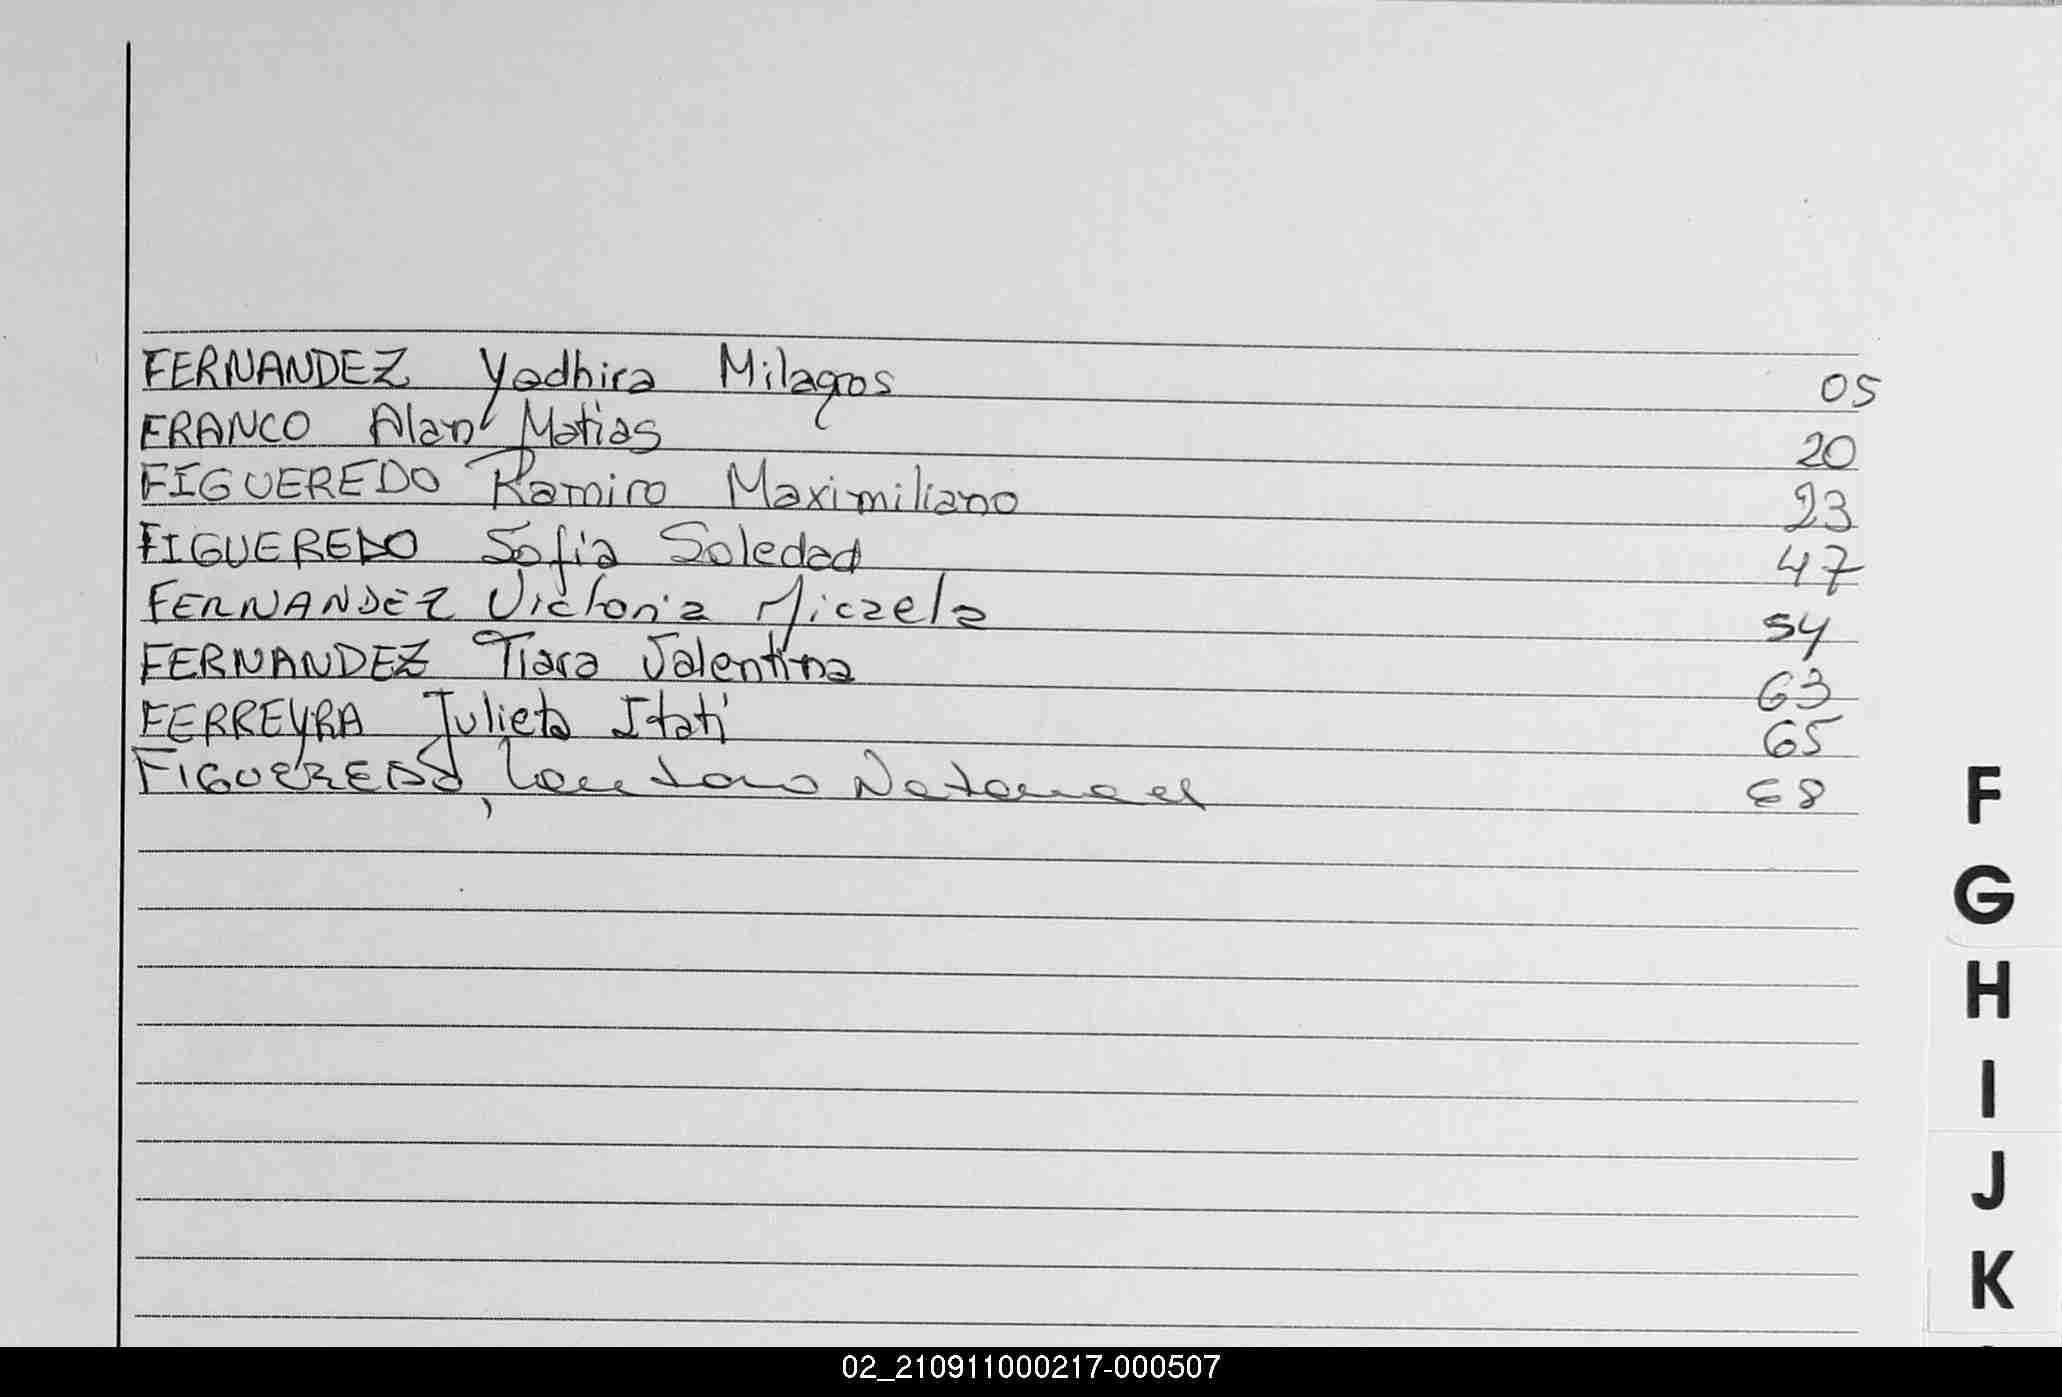 FERNANDEZ Yadhira Milagros 05
FRANCO Alan Matias 20
FIGUEREDO Ramiro Maximiliano 23
FIGUEREDO Sofia Soledad 47
FERNANDEZ Victoria Micaela 54
FERNANDEZ Tiara Valentina 63
FERREYRA Julieta Itatí 65
FIGUEREDO, Lautaro Natanael 68
F
G
H
I
J
K
02_210911000217-000507